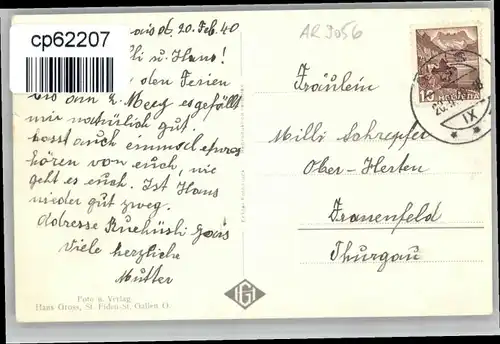 cp62207
AR 3056
Gais d. 20. Feb. 40
u. Hans!
den Ferien
bis am 2. Merz es gefällt
mir natürlich gut.
lasst auch einmal etwas
hören von euch, wie
geht es euch. Ist Hans
wieder gut zweg.
Adresse Ruehüsli Gais
Viele herzliche
Mutter
Fräulein
Milli Schrepfer
Ober-Herten
Frauenfeld
Thurgau
15 HELVETIA
IX
Foto u. Verlag
Hans Gross, St. Fiden-St. Gallen O.